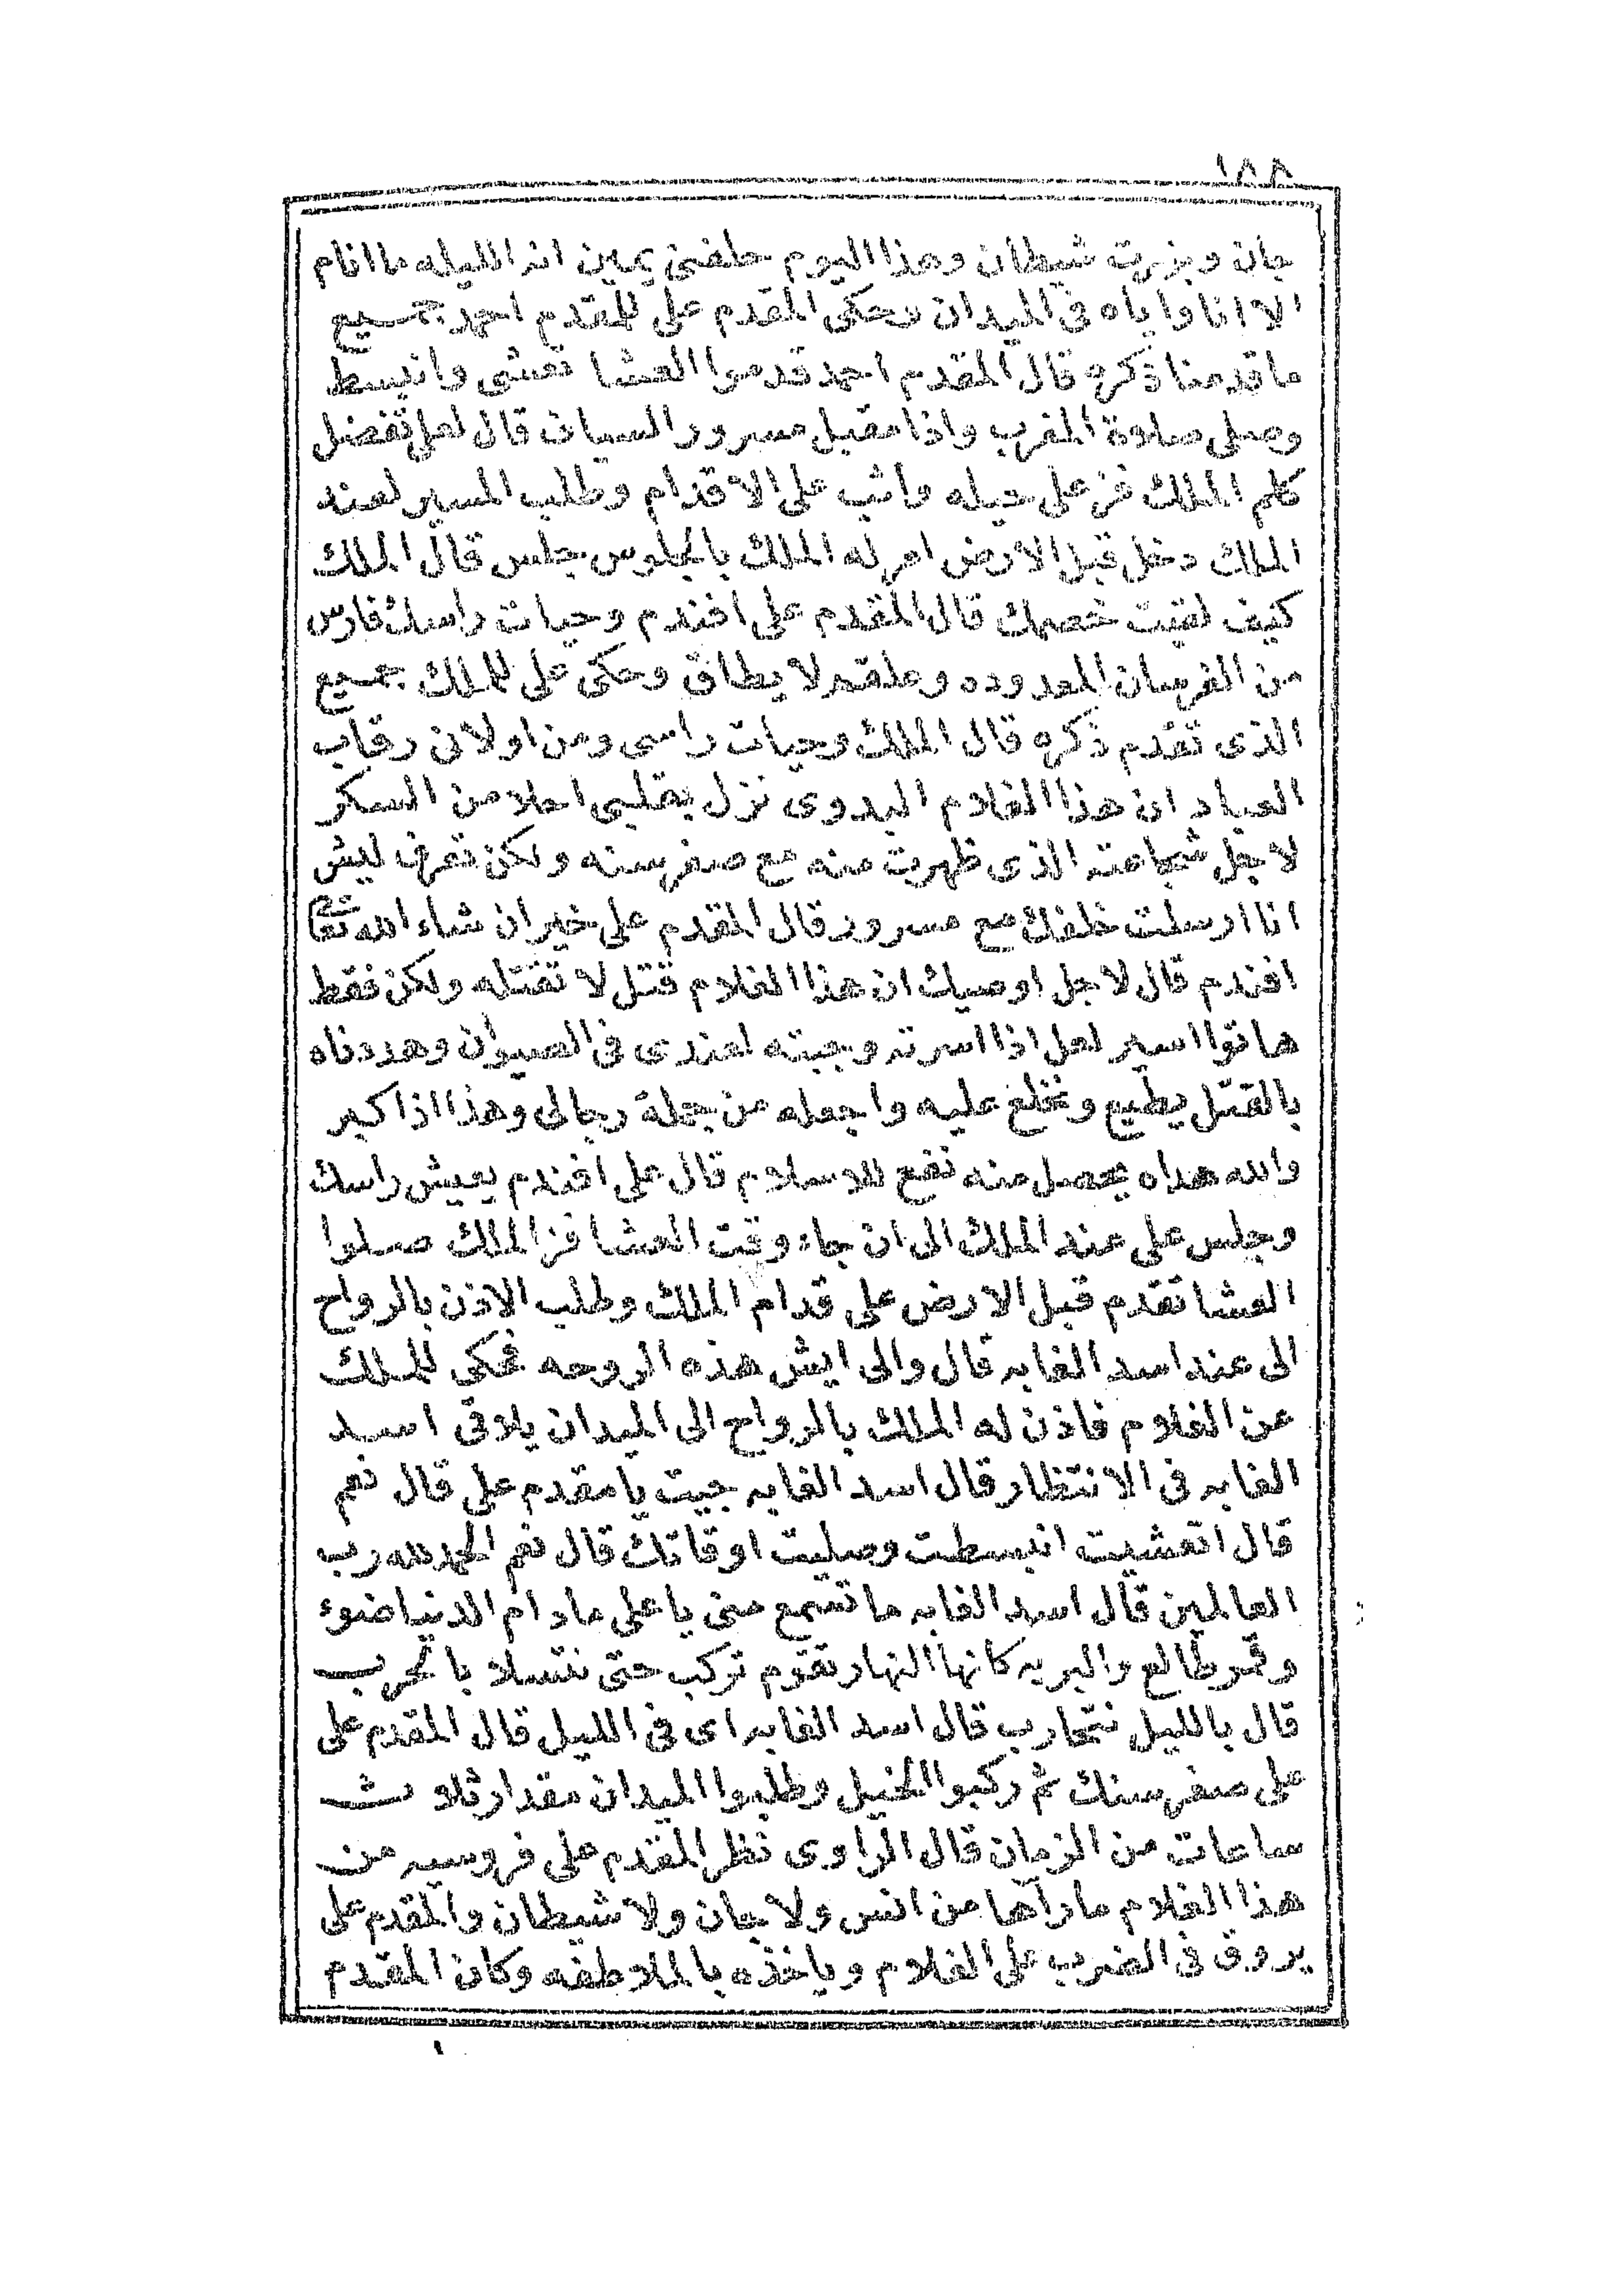 ١٨٨
جان وبزرت شيطان وهذا اليوم حلفنى يمين انه الليله ما انام
الا انا واياه فى الميدان وحكى المقدم على للمقدم احمد جميع
ما قدمنا ذكره قال المقدم احمد قدموا العشا تعشى وانبسط
وصلى صلاوة المغرب واذا مقبل مسرور السياف قال لعلى تفضل
كلم الملك فز على حيله واثب على الاقدام وطلب المسير لعند
الملك دخل قبل الارض امر له الملك بالجلوس جلس قال الملك
كيف لقيت خصمك قال المقدم على افندم وحيات راسك فارس
من الفرسان المعدوده وعلقم لا يطاق وحكى على للملك جميع
الذى تقدم ذكره قال الملك وحيات راسى ومن اولانى رقاب
العباد ان هذا الغلام البدوى نزل بقلبى احلا من السكر
لاجل شجاعته الذى ظهرت منه مع صغر سنه ولكن تعرف ليش
انا ارسلت خلفك مع مسرور قال المقدم على خير ان شاء الله تعا
افندم قال لاجل اوصيك ان هذا الغلام قتل لا تقتله ولكن فقط
هاتوا اسير لعل اذا اسرته وجبته لعندى فى الصيوان وهددناه
بالقتل يطيع ونخلع عليه واجعله من جملة رجالى وهذا اذا كبر
والله هداه يحصل منه نفع للاسلام قال على افندم يعيش راسك
وجلس على عند الملك الى ان جاء وقت العشا فز الملك صلوا
العشا تقدم قبل الارض على قدام الملك وطلب الاذن بالرواح
الى عند اسد الغابه قال والى ايش هذه الروحه فحكى للملك
عن الغلام فاذن له الملك بالرواح الى الميدان يلاقى اسد
الغابه فى الانتظار قال اسد الغابه جيت يا مقدم على قال نعم
قال اتعشيت انبسطت وصليت اوقاتك قال نعم الحمد لله رب
العالمين قال اسد الغابه ما تسمع منى يا على مادام الدنيا ضوء
وقمر طالع والبريه كانها النهار تقوم تركب حتى نتسلا بالحرب
قال بالليل نتحارب قال اسد الغابه اى فى الليل قال المقدم على
على صغر سنك ثم ركبوا الخيل وطلبوا الميدان مقدار ثلاث
ساعات من الزمان قال الراوى نظر المقدم على فروسيه من
هذا الغلام ما رآها من انس ولا جان ولا شيطان والمقدم على
يروق فى الضرب على الغلام وياخذه بالملاطفه وكان المقدم